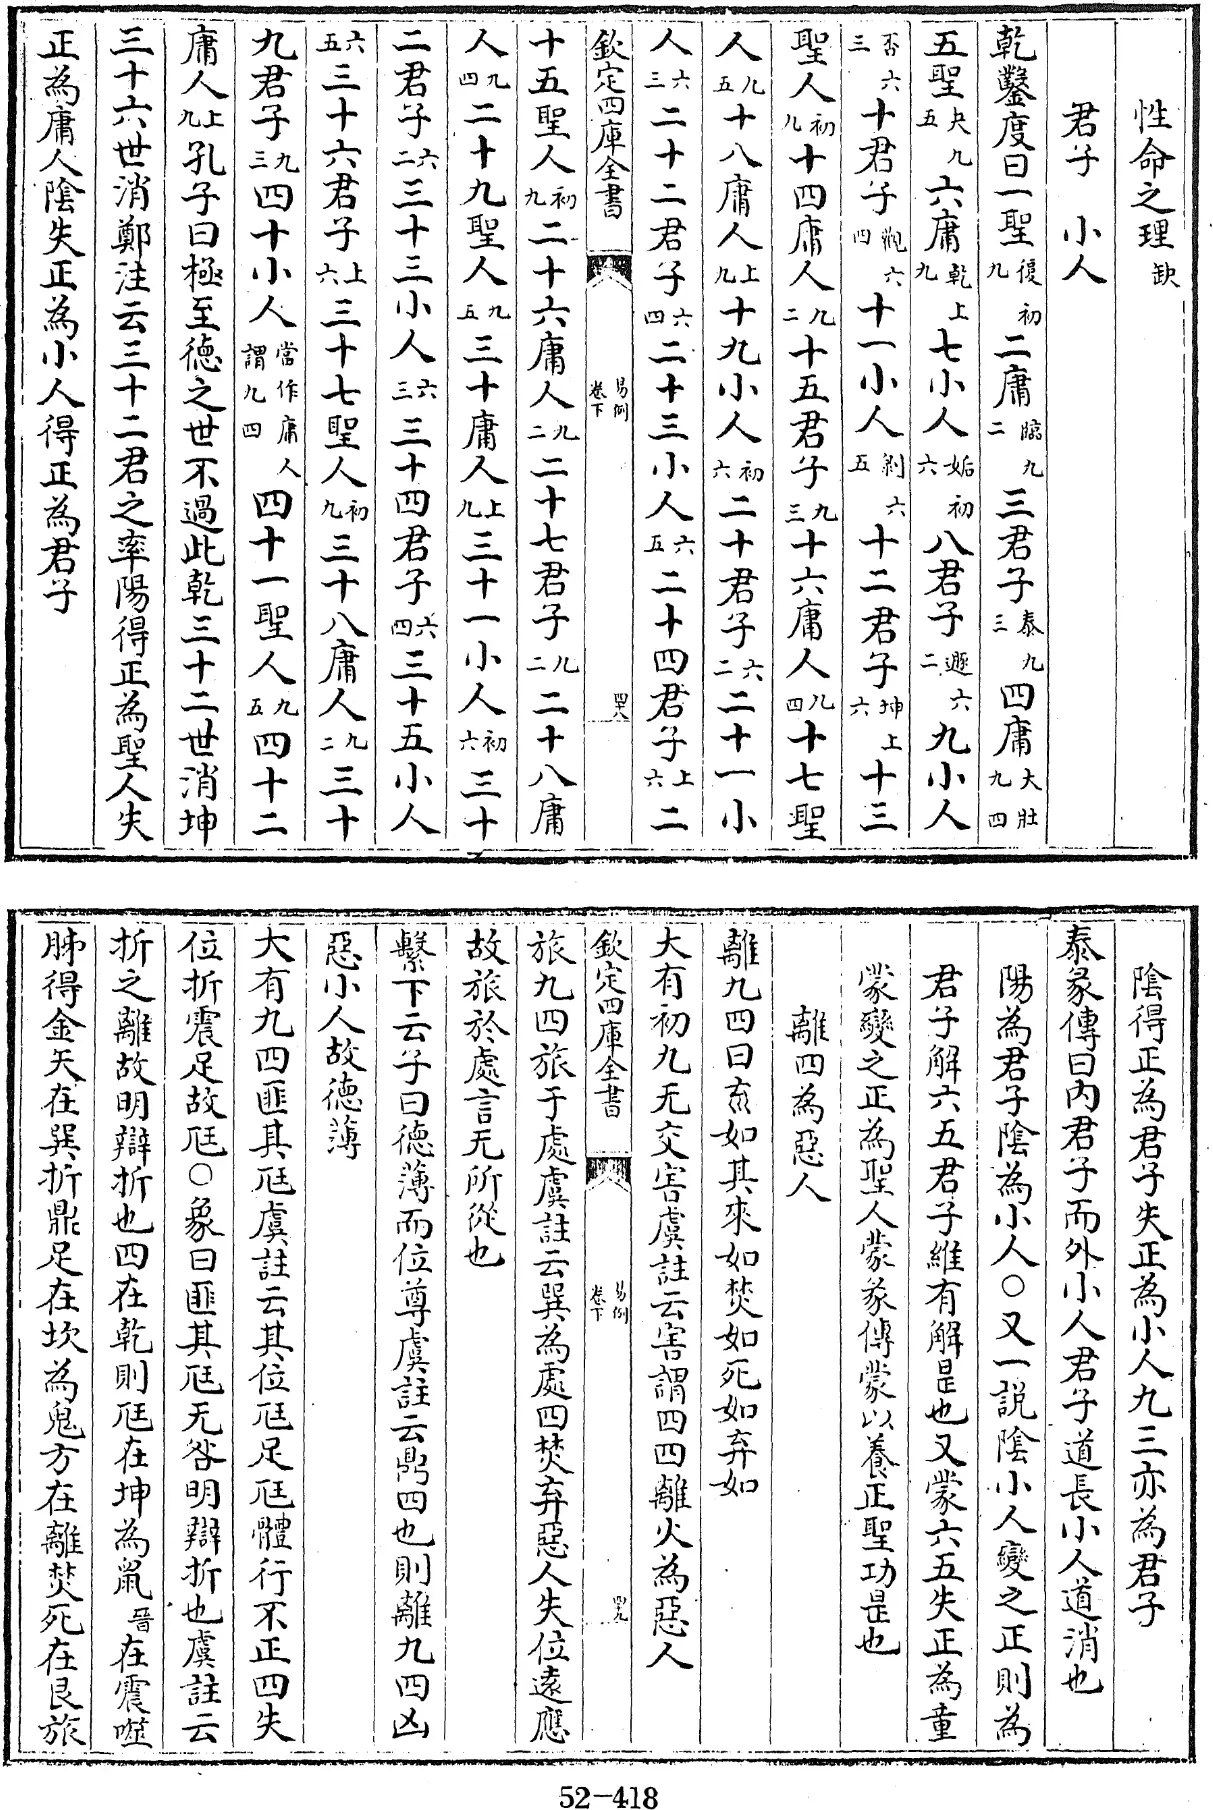 性命之理缺
君子 小人
乾鑿度曰一聖復初九二庸臨九二三君子泰九三四庸大壯九四
五聖夬九五六庸乾上九七小人姤初六八君子遯六二九小人
否六三十君子觀六四十一小人剝六五十二君子坤上六十三
聖人初九十四庸人九二十五君子九三十六庸人九四十七聖
人九五十八庸人上九十九小人初六二十君子六二二十一小
人六三二十二君子六四二十三小人六五二十四君子上六二
欽定四庫全書 易例卷下 四八
十五聖人初九二十六庸人九二二十七君子九二二十八庸
人九四二十九聖人九五三十庸人上九三十一小人初六三十
二君子六二三十三小人六三三十四君子六四三十五小人
六五三十六君子上六三十七聖人初九三十八庸人九二三十
九君子九三四十小人當作庸人謂九四四十一聖人九五四十二
庸人上九孔子曰極至德之世不過此乾三十二世消坤
三十六世消鄭注云三十二君之率陽得正為聖人失
正為庸人陰失正為小人得正為君子
陰得正為君子失正為小人九三亦為君子
泰彖傳曰內君子而外小人君子道長小人道消也
陽為君子陰為小人○又一說陰小人變之正則為
君子解六五君子維有解是也又蒙六五失正為童
蒙變之正為聖人蒙彖傳蒙以養正聖功是也
離四為惡人
離九四曰𡿮如其來如焚如死如弃如
大有初九无交害虞註云害謂四四離火為惡人
欽定四庫全書 易例卷下 四九
旅九四旅于處虞註云巽為處四焚弃惡人失位遠應
故旅於處言无所從也
繫下云子曰德薄而位尊虞註云鼎四也則離九四凶
惡小人故德薄
大有九四匪其尫虞註云其位尫足尫體行不正四失
位折震足故尫○象曰匪其尫无咎明辯折也虞註云
折之離故明辯折也四在乾則尫在坤為鼠晋在震噬
胏得金矢在巽折鼎足在坎為鬼方在離焚死在艮旅
52-418